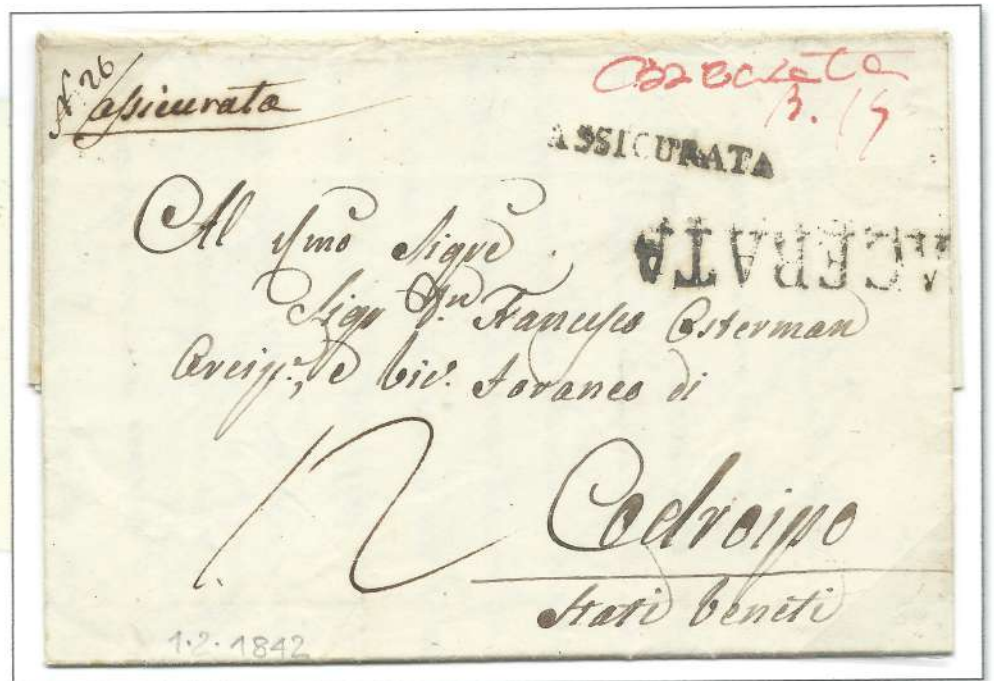 N. 26
assicurata
Macerata
13. 15
ASSICURATA
MACERATA
Al Ill͞mo Sigre
Sigr Dn Francesco Osterman
Arcip.e, e Vic.o Foraneo di
12
Codroipo
Stati Veneti
1.2.1842